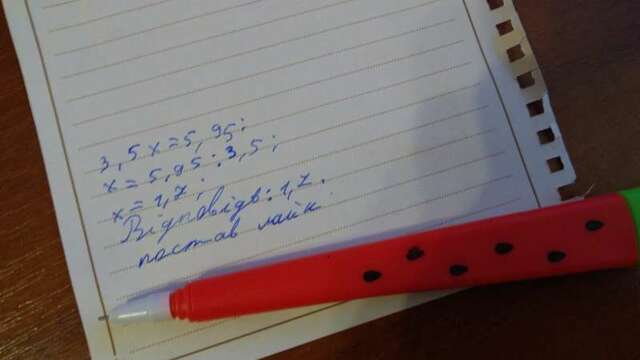 3,5x=5,95;
x=5,95:3,5;
x=1,7;
Відповідь:1,7.
постав лайк